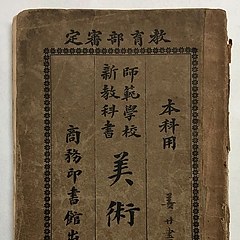 教育部審定
本科用
師範學校
新教科書
美術
商務印書館出